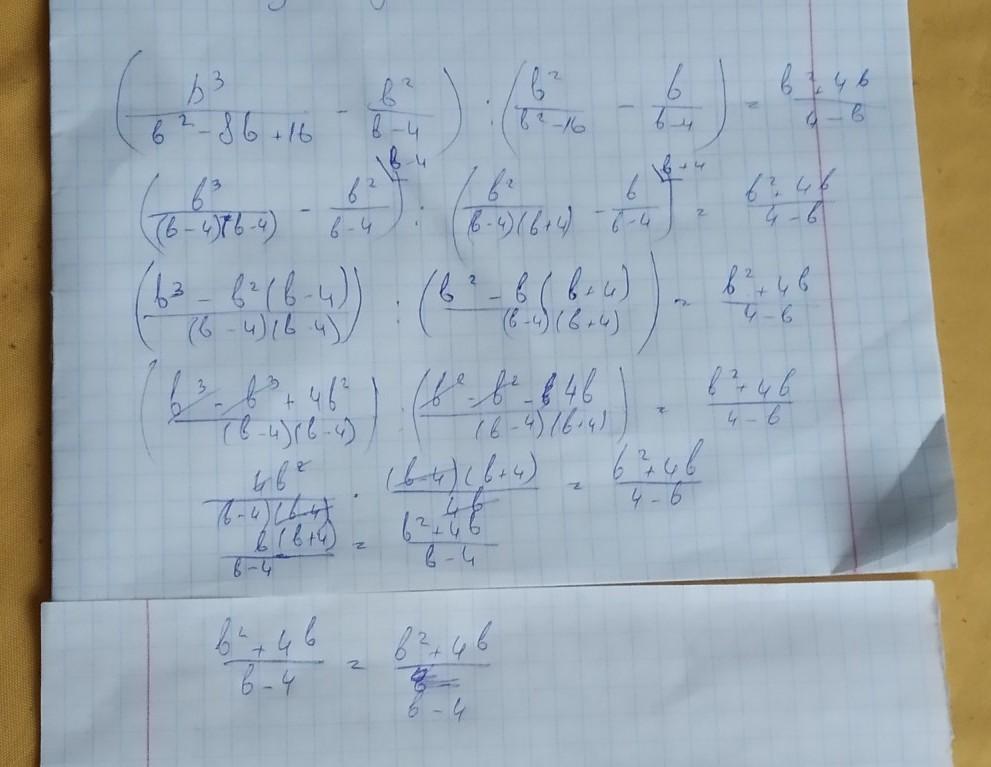 (b³/(b² - 8b + 16) - b²/(b - 4)) : (b²/(b² - 16) - b/(b - 4)) = (b² + 4b)/(4 - b)
(b³/((b - 4)(b - 4)) - b²/(b - 4) \b - 4) : (b²/((b - 4)(b + 4)) - b/(b - 4) \b + 4) = (b² + 4b)/(4 - b)
((b³ - b²(b - 4))/((b - 4)(b - 4))) : ((b² - b(b + 4))/((b - 4)(b + 4))) = (b² + 4b)/(4 - b)
((b³ - b³ + 4b²)/((b - 4)(b - 4))) : ((b² - b² - 4b)/((b - 4)(b + 4))) = (b² + 4b)/(4 - b)
4b²/((b - 4)(b - 4)) · ((b - 4)(b + 4))/4b = (b² + 4b)/(4 - b)
b(b + 4)/(b - 4) = (b² + 4b)/(b - 4)
(b² + 4b)/(b - 4) = (b² + 4b)/(b - 4)